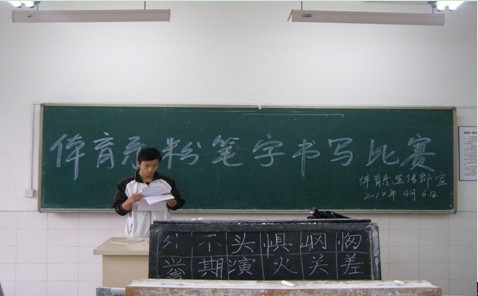 体育系粉笔字书写比赛
体育系宣传部宣
2012年4月6日
不头惧
期演火关差